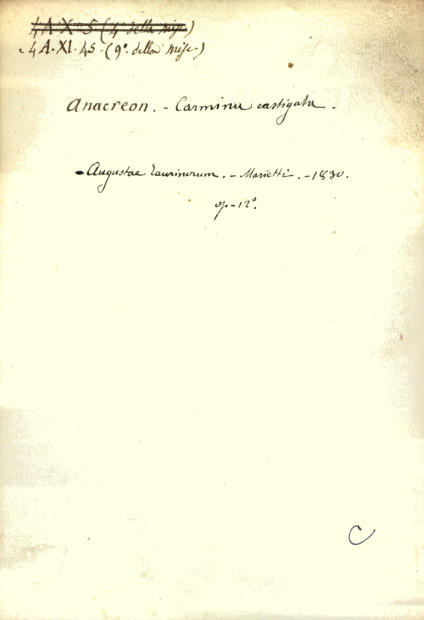 4 A. X. 5 (4° della misc.)
4 A. XI. 45 - (9°. della misc.)
Anacreon. - Carmina castigata.
- Augustae Taurinorum. - Marietti. - 1830.
op - 12°.
C